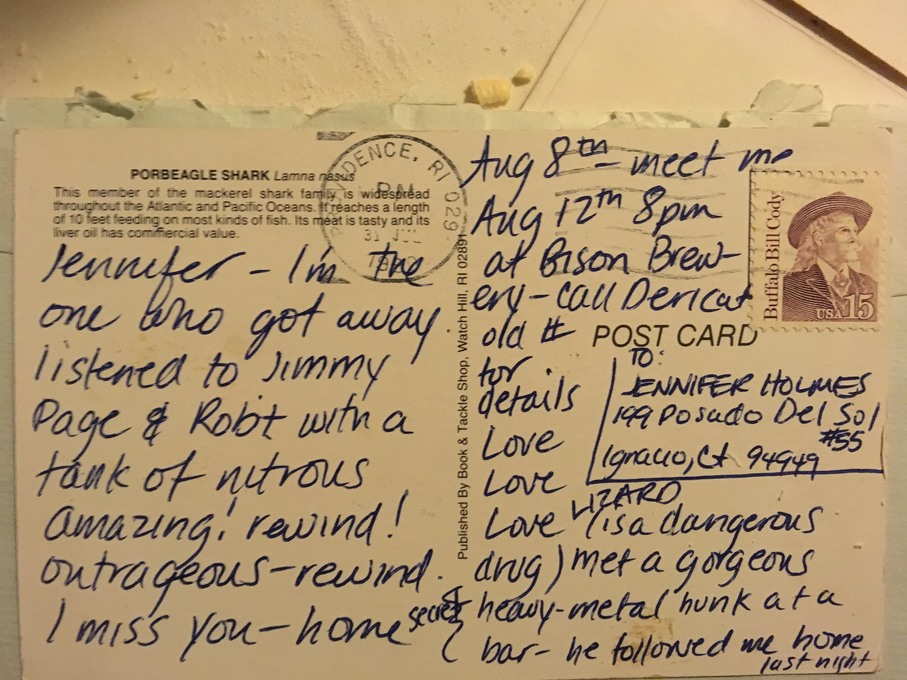 PORBEAGLE SHARK Lamna nasus
This member of the mackerel shark family is widespread
throughout the Atlantic and Pacific Oceans. It reaches a length
of 10 feet feeding on most kinds of fish. Its meat is tasty and its
liver oil has commercial value.
Jennifer - I'm the
one who got away
listened to Jimmy
Page & Robt with a
tank of nitrous
amazing! rewind!
outrageous-rewind.
I miss you-home
DENCE, RI 029
PM
Published By Book & Tackle Shop, Watch Hill, RI 02891
Aug 8th - meet me
Aug 12th 8pm
at Bison Brew-
ery - call Dericat
old #
for
details
Love
Love
Love LIZARD
(is a dangerous
drug) met a gorgeous
secret
heavy-metal hunk at a
bar- he followed me home
last night
Buffalo Bill Cody
USA 15
POST CARD
TO:
JENNIFER HOLMES
199 Posado Del Sol
#55
Ignacio, Ct 94949